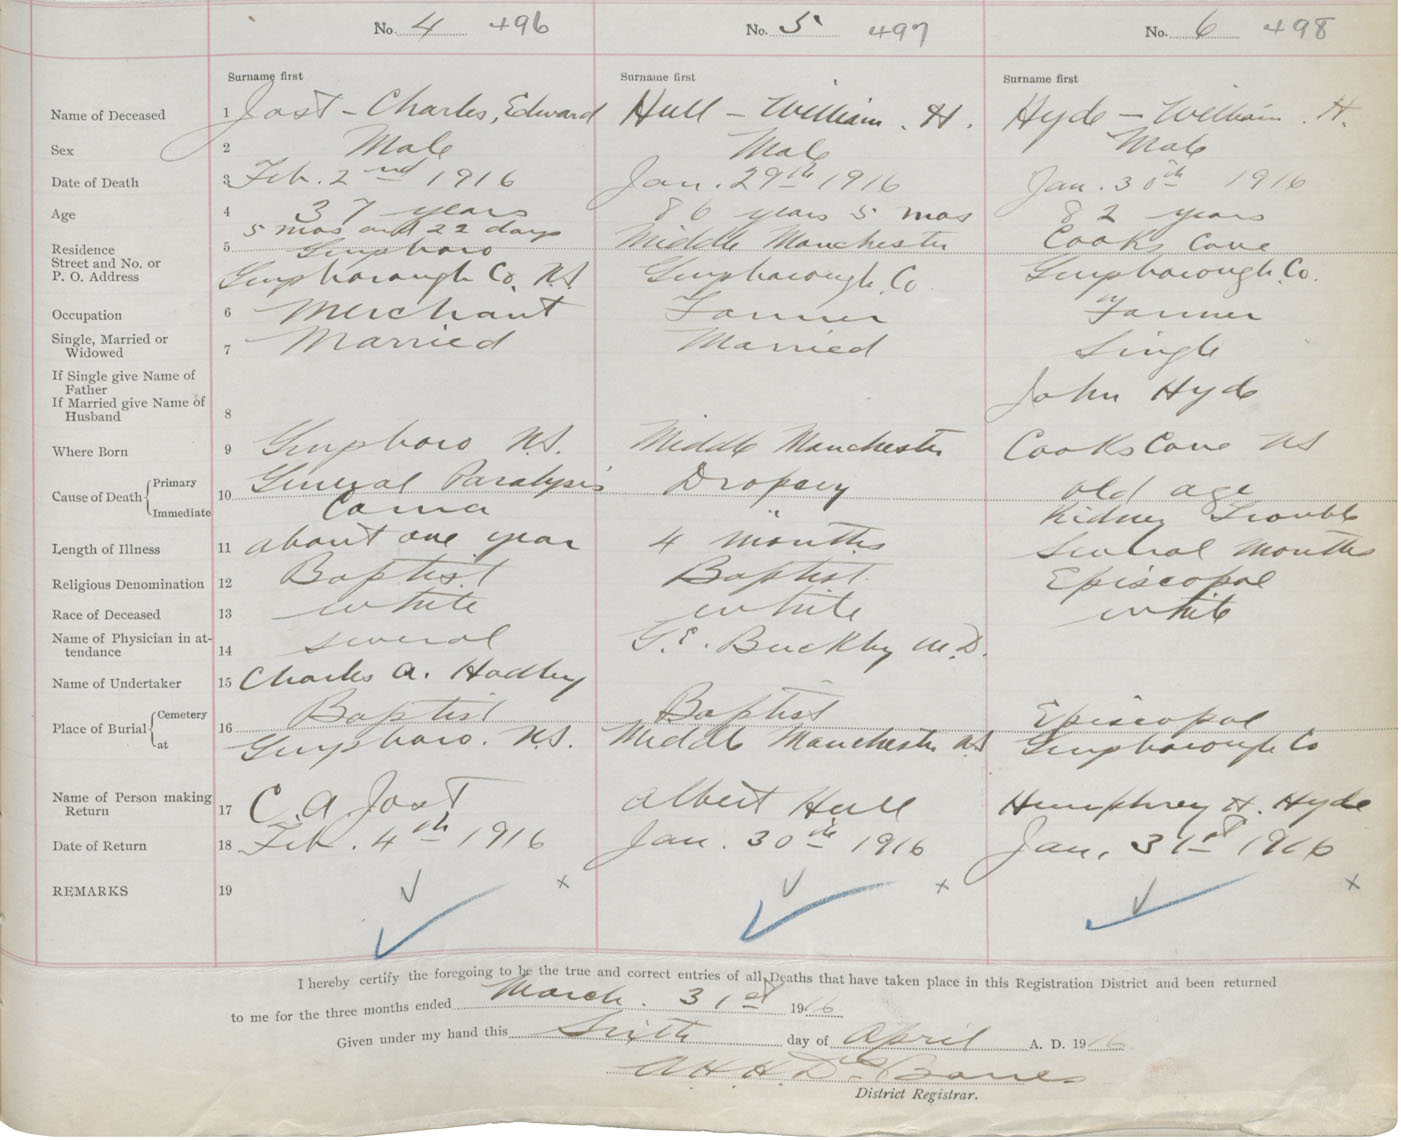 No. 4 496 No. 5 497 No. 6 498
Surname first Surname first Surname first
Name of Deceased 1 Jost - Charles, Edward Hull - William . H. Hyde - William . H.
Sex 2 Male Male Male
Date of Death 3 Feb. 2nd 1916 Jan. 29th 1916 Jan. 30th 1916
Age 4 37 years 86 years 5 mos 82 years
5 mos and 22 days
Residence 5 Guysboro Middle Manchester Cooks Cove
Street and No. or
P. O. Address Guysborough Co. N.S. Guysborough Co. Guysborough Co.
Occupation 6 Merchant Farmer Farmer
Single, Married or
Widowed 7 Married Married Single
If Single give Name of
Father John Hyde
If Married give Name of
Husband 8
Where Born 9 Guysboro N.S. Middle Manchester Cooks Cove NS
Cause of Death { Primary 10 General Paralysis Dropsey old age
Immediate Coma " Kidney Trouble
Length of Illness 11 about one year 4 months Several Months
Religious Denomination 12 Baptist Baptist Episcopal
Race of Deceased 13 white white white
Name of Physician in at-
tendance 14 several G. E. Buckley M.D.
Name of Undertaker 15 Charles A. Hadley
Place of Burial { Cemetery 16 Baptist Baptist Episcopal
at Guysboro. N.S. Middle Manchester NS Guysborough Co
Name of Person making
Return 17 C. A Jost Albert Hull Humphrey H. Hyde
Date of Return 18 Feb. 4th 1916 Jan. 30th 1916 Jan. 31st 1916
REMARKS 19
I hereby certify the foregoing to be the true and correct entries of all Deaths that have taken place in this Registration District and been returned
to me for the three months ended March. 31st 1916
Given under my hand this Sixth day of April A. D. 1916
A H H
District Registrar.